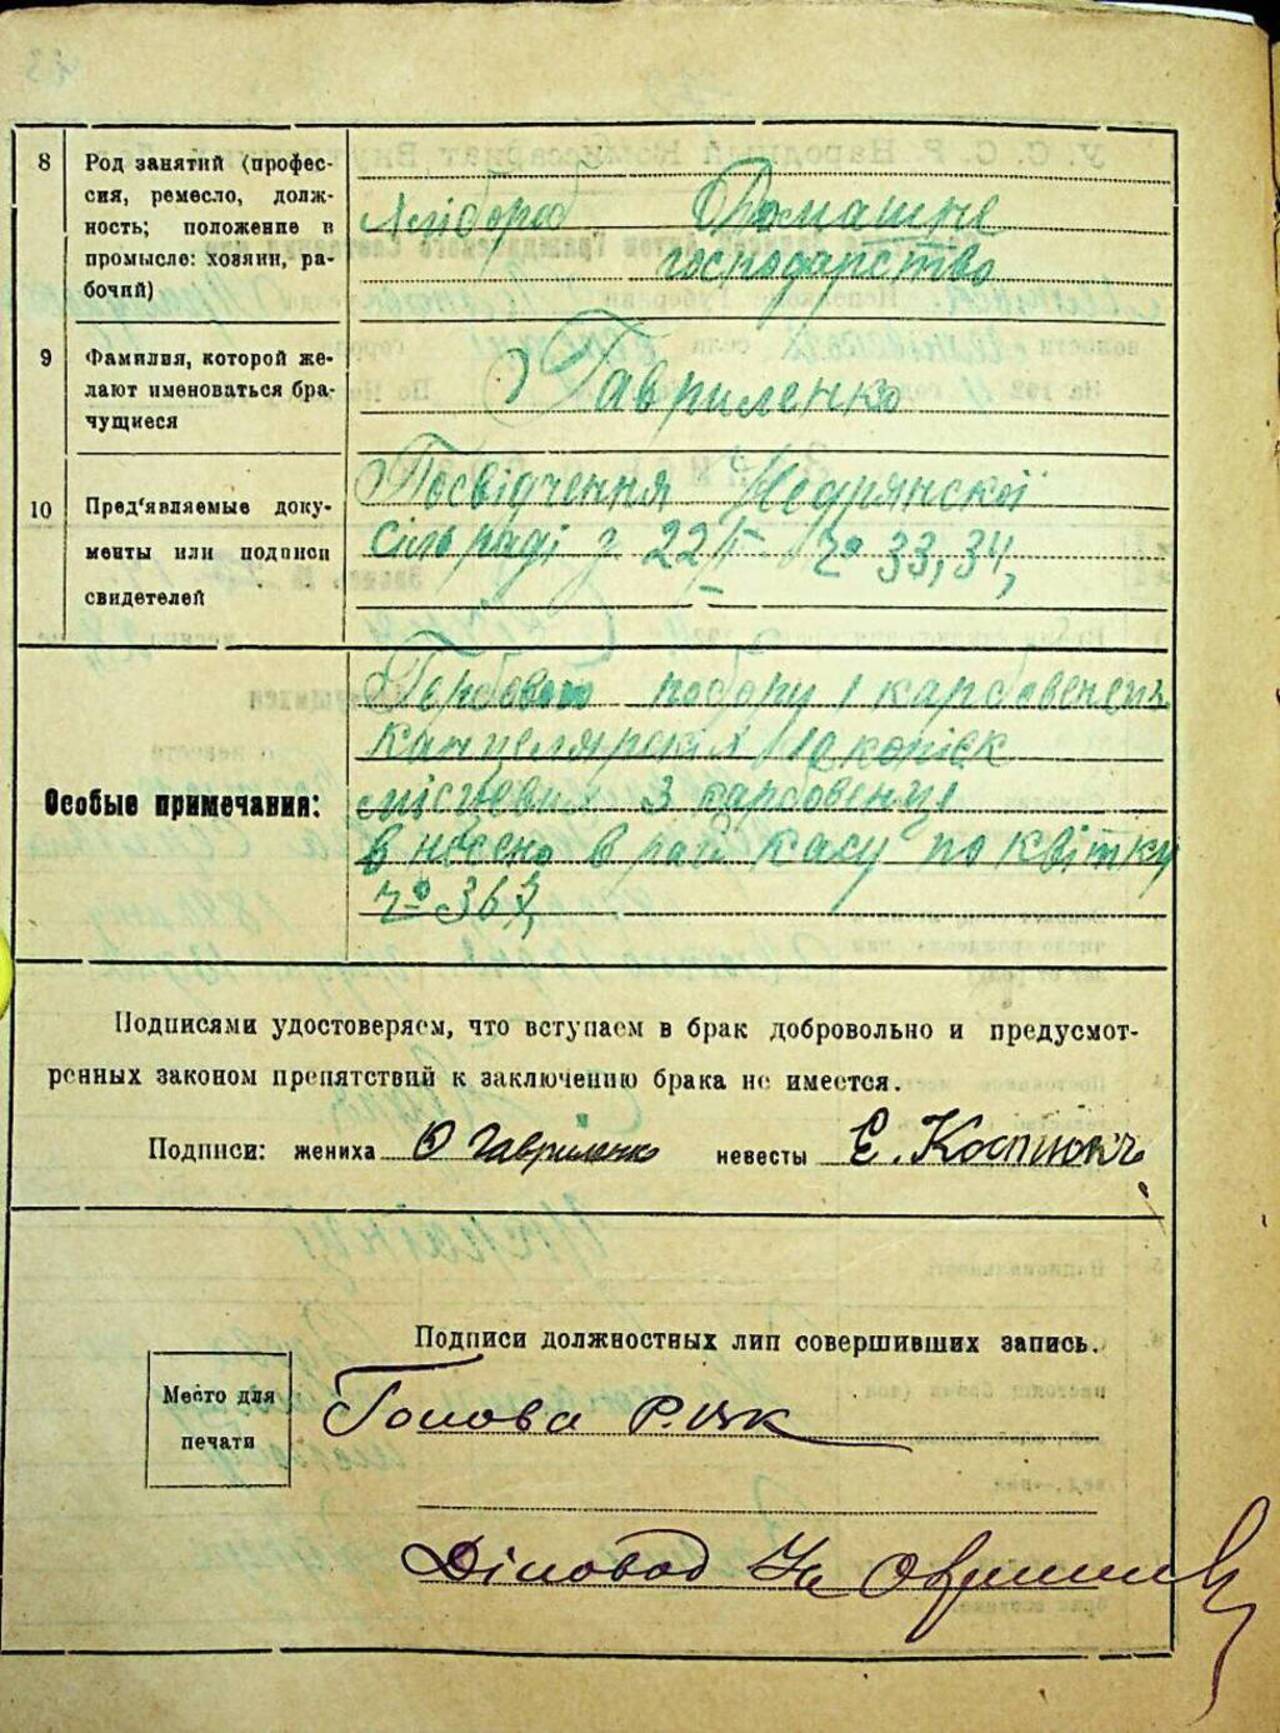 8 Род занятий (профес-
сия, ремесло, долж-
ность; положение в
промысле: хозяин, ра-
бочий)
Хлібороб Домашнє
господарство
9 Фамилия, которой же-
лают именоваться бра-
чущиеся
Гавриленко
10 Пред'являемые доку-
менты или подписи
свидетелей
Посвідчення Недрянскої
сільраді з 22/I № 33, 34,
Особые примечания:
Гербового побору 1 карбованець
канцелярских 10 копієк
місцевих 3 карбованці
внесено в рай касу по квітку
№ 363,
Подписями удостоверяем, что вступаем в брак добровольно и предусмот-
ренных законом препятствий к заключению брака не имеется.
Подписи: жениха О Гавриленко невесты Е. Костюкъ
Подписи должностных лип совершивших запись.
Место для
печати
Голова Р.вк
Діловод